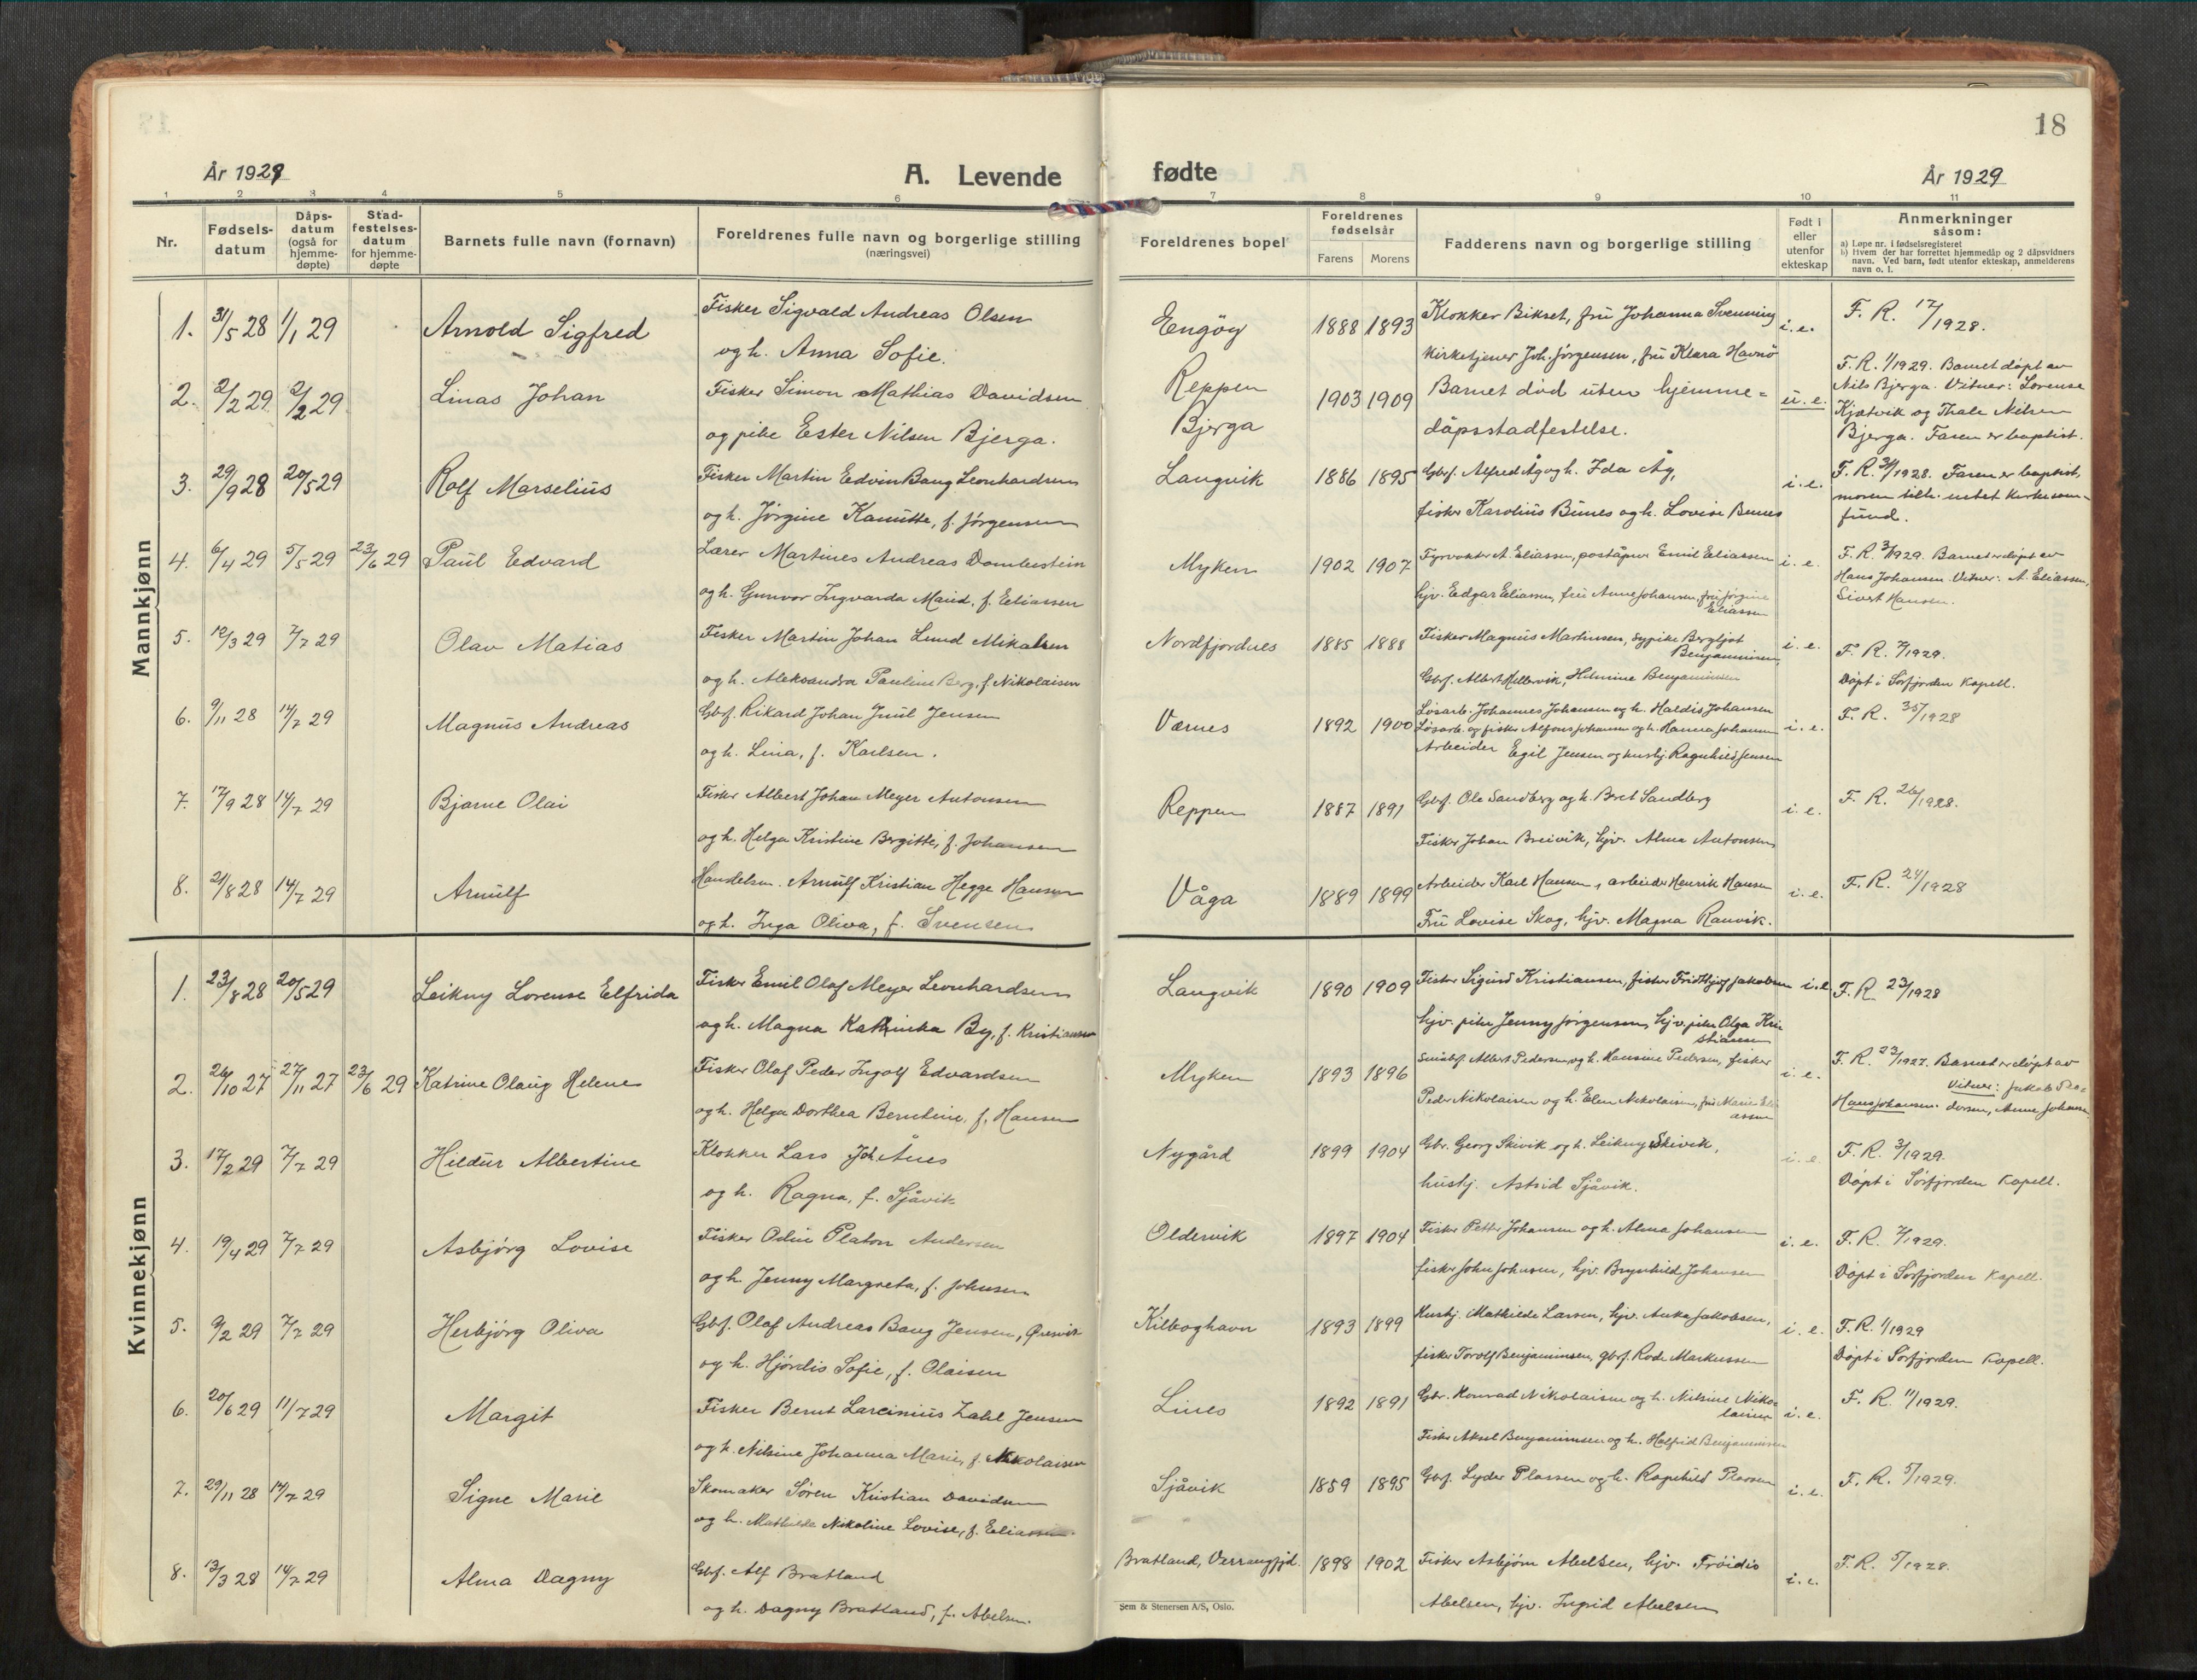 18
År 1929
A. Levende
fødte
År 1929
1 2 3 4 5 6 7 8 9 10 11
Nr.
Fødsels-
datum
Dåps-
datum
(også for
hjemme-
døpte)
Stad-
festelses-
datum
for hjemme-
døpte
Barnets fulle navn (fornavn)
Foreldrenes fulle navn og borgerlige stilling
(næringsvei)
Foreldrenes bopel
Foreldrenes
fødselsår
Farens Morens
Fadderens navn og borgerlige stilling
Født i
eller
utenfor
ekteskap
Anmerkninger
såsom:
a) Løpe nr. i fødselsregisteret
b) Hvem der har forrettet hjemmedåp og 2 dåpsvidners
navn. Ved barn, født utenfor ekteskap, anmelderens
navn o. l.
Mannkjønn
1. 31/5 28 1/1 29 Arnold Sigfred
Fisker Sigvald Andreas Olsen
og h. Anna Sofie.
Engöy 1888 1893
Klokker Bikset, fru Johanna Svenning
kirketjener Joh. Jørgensen, fru Klara Havnö
i. e.
F. R. 17/1928.
2. 2/2 29 2/2 29 Linas Johan
Fisker Simon Mathias Davidsen
og pike Ester Nilsen Bjerga.
Reppen
Bjerga
1903 1909
Barnet död uten hjemme=
dåpsstadfestelse.
u. e.
F. R. 1/1929. Barnet døpt av
Nils Bjerga. Vitner: Lorense
Kjætvik og Thale Nilsen
Bjerga. Faren er baptist.
3. 29/9 28 20/5 29 Rolf Marselius
Fisker Martin Edvin Baug Leonhardsen
og h. Jörgine Kanutte, f. Jörgensen
Langvik 1886 1895
Gbrf. Alfred Åg og h. Ida Åg,
fisker Karolius Bünes og h. Lovise Bünes
i. e.
F. R. 31/1928. Faren er baptist,
moren tilh. intet kirkesam-
fund.
4. 6/4 29 5/5 29 23/6 29 Paul Edvard
Lærer Martines Andreas Dombestein
og h. Gunvor Ingvarda Maud, f. Eliassen
Myken 1902 1907
Fyrvokter A. Eliassen, poståpner Emil Eliassen
hjv. Edgar Eliassen, fru Anne Johansen, fru Jörgine
Eliassen
i. e.
F. R. 3/1929. Barnet er döpt av
Hans Johansen. Vitner: A. Eliassen,
Sivert Hansen.
5. 12/3 29 7/7 29 Olav Matias
Fisker Martin Johan Lund Mikalsen
og h. Aleksandra Pauline Berg, f. Nikolaisen
Nordfjordnes 1885 1888
Fisker Magnus Martinsen, sypike Bergljot
Benjaminsen,
Gbrf. Albert Hellervik, Hilmine Benjaminsen
i. e.
F. R. 2/1929.
Döpt i Sörfjorden Kapell.
6. 9/11 28 14/7 29 Magnus Andreas
Gbrf. Rikard Johan Juul Jensen
og h. Lina, f. Karlsen.
Værnes 1892 1900
Lösarb. Johannes Johansen og h. Haldis Johansen
Lösarb. og fisker Alfons Johansen og h. Hanna Johansen
Arbeider Egil Jensen og husbj. Ragnhild Jensen
i. e.
F. R. 35/1928
7. 17/9 28 14/7 29 Bjarne Olai
Fisker Albert Johan Meyer Antonsen
og h. Helga Kristine Bergitte, f. Johansen
Reppen 1887 1891
Gbrf. Ole Sandberg og h. Bret Sandberg
Fisker Johan Breivik, hjv. Alma Antonsen
i. e.
F. R. 26/1928.
8. 21/8 28 14/7 29 Arnulf
Handelsm. Arnulf Kristian Hegge Hansen
og h. Inga Oliva, f. Svensen
Våga 1889 1899
Arbeider Karl Hansen, arbeider Henrik Hansen
Fru Lovise Skog, hjv. Magna Ranvik.
i. e.
F. R. 24/1928
Kvinnekjønn
1. 23/8 28 20/5 29 Leikny Lorense Elfrida
Fisker Emil Olaf Meyer Leonhardsen
og h. Magna Katinka By, f. Kristiansen
Langvik 1890 1909
Fisker Sigurd Kristiansen, fisker Fridthjof Jakobsen
hjv. pike Jenny Jørgensen, hjv. pike Olga Kri-
stiansen
i. e.
F. R. 23/1928
2. 26/10 27 27/11 27 23/6 29 Katrine Olaug Helene
Fisker Olaf Peder Ingolf Edvardsen
og h. Helga Dorthea Berntine, f. Hansen
Myken 1893 1896
Småbf. Albert Pedersen og h. Hansine Pedersen, fisker
Peder Nikolaisen og h. Elen Nikolaisen, fru Marie Eli-
assen
i. e.
F. R. 23/1927. Barnet er döpt av
Vitner: Jakob Pe=
Hans Johansen. dersen, Anne Johansen
3. 17/2 29 7/7 29 Hildur Albertine
Klokker Lars Joh. Ånes
og h. Ragna, f. Sjåvik
Nygård 1899 1904
Gbr. Georg Skivik og h. Leikny Skivik,
husbj. Astrid Sjåvik.
i. e.
F. R. 3/1929.
Döpt i Sörfjorden Kapell.
4. 19/4 29 7/7 29 Asbjörg Lovise
Fisker Odin Platon Andersen
og h. Jenny Margreta, f. Johnsen
Oldervik 1897 1904
Fisker Petter Johansen og h. Alma Johansen
fisker John Johnsen, hjv. Brynhild Johansen
i. e.
F. R. 7/1929.
Döpt i Sörfjorden Kapell.
5. 9/2 29 7/7 29 Herbjörg Oliva
Gbf. Olaf Andreas Baug Jensen, Øresvik
og h. Hjördis Sofie, f. Olaisen
Kilboghavn 1893 1899
Husbj. Mathilde Larsen, hjv. Anka Jakobsen,
fisker Torolf Benjaminsen, gbrf. Rode Markussen
i. e.
F. R. 1/1929
Döpt i Sörfjorden Kapell.
6. 20/6 29 11/7 29 Margit
Fisker Bernt Larcinius Zahl Jensen
og h. Nilsine Johanna Marie, f. Nikolaisen
Lines 1892 1891
Gbr. Konrad Nikolaisen og h. Nilsine Niko-
laisen
Fisker Aksel Benjaminsen og h. Halfrid Benjaminsen
i. e.
F. R. 11/1929.
7. 29/11 28 14/7 29 Signe Marie
Skomaker Sören Kristian Davidsen
og h. Mathilde Nikoline Lovise, f. Eliassen.
Sjåvik 1859 1895
Gbrf. Lyder Plassen og h. Ragnhild Plassen
i. e.
F. R. 5/1929.
8. 13/3 28 14/7 29 Alma Dagny
Gbrf. Alf Bratland
og h. Dagny Bratland, f. Abelsen.
Bratland, Værrangfjd. 1898 1902
Fisker Asbjörn Abelsen, hjv. Fröidis
Abelsen, hjv. Ingrid Abelsen
i. e.
F. R. 5/1928.
Sem & Stenersen A/S, Oslo.